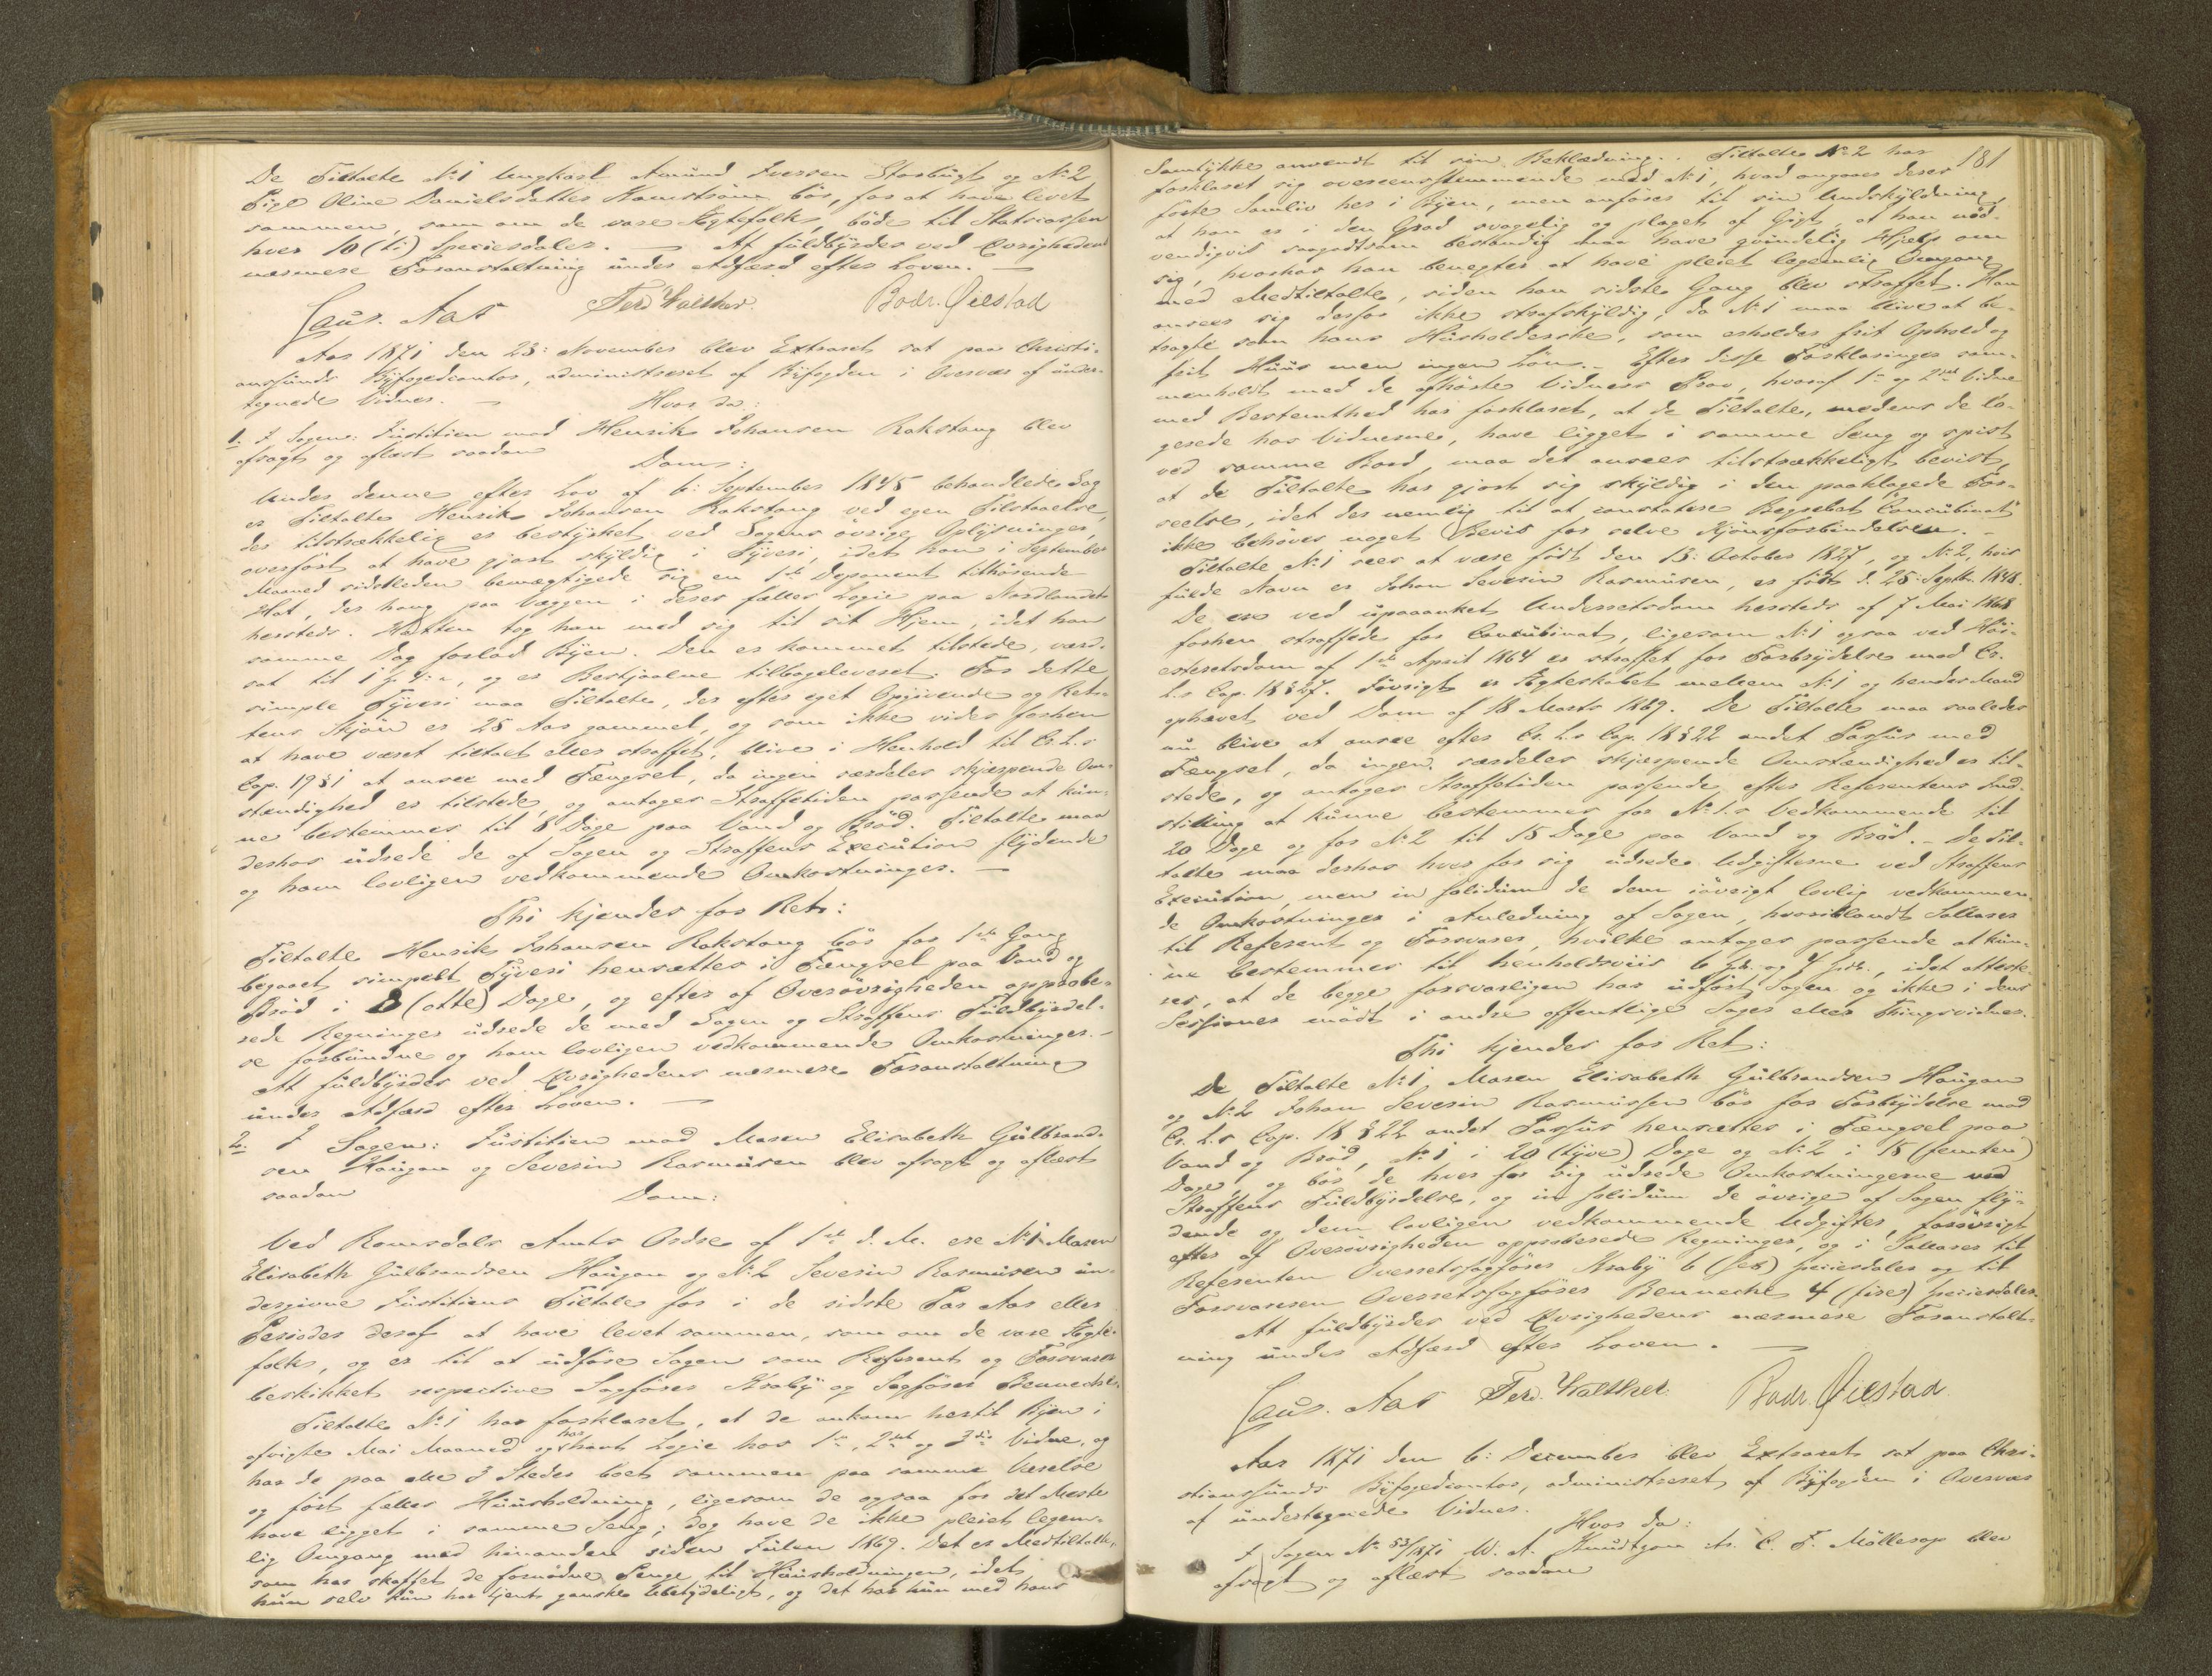 De Tiltalte No 1 Ungkarl Amund Iversen Storbugt og No 2
Pige Oline Danielsdatter Kamstrøm bör, for at have levet
sammen, som om de vare Ægtefolk, böde til Statscassen
hver 10 (ti) Speciesdaler. — At fuldbyrdes ved Øvrighedens
nærmere Foranstaltning under Adfærd efter Loven. —
Caus. Aas Ferd. Walther. Bodv. Qiestad
Aar 1871 den 23: November blev Extraret sat paa Christi-
anssunds Byfogedcontor, administreret af Byfogden i Overvær af under-
tegnede Vidner. — Hvor da:
1. I Sagen: Justitien mod Henrik Johansen Rakstang blev
afsagt og aflæst saadan Dom:
Under denne efter Lov af 6: September 1845 behandlede Sag
er Tiltalte Henrik Johansen Rakstang ved egen Tilstaaelse,
der tilstrækkelig er bestyrket ved Sagens övrige Oplysninger,
overført at have gjort skyldig i Tyveri, idet han i September
Maaned sidstleden bemægtigede sig en 1ste Deponent tilhörende
Hat, der hang paa Væggen i deres fælles Logie paa Nordlandet
hersteds. Hatten tog han med sig til sit Hjem, idet han
samme Dag forlod Byen. Den er kommet tilstede, værd-
sat til 1 og er Bestjaalne tilbageleveret. For dette
simple Tyveri maa Tiltalte, der efter eget Opgivende og Ret-
tens Skjön er 25 Aar gammel, og som ikke vides forhen
at have været tiltalt eller straffet, blive i Henhold til Cr. L.s
Cap. 19 § 1 at ansee med Fængsel, da ingen særdeles skjærpende Om-
stændighed er tilstede, og antages Straffetiden passende at kun-
ne bestemmes til 8 Dage paa Vand og Bröd. Tiltalte maa
derhos udrede de af Sagen og Straffens Execution flydende
og ham lovligen vedkommende Omkostninger. —
Thi kjendes for Ret:
Tiltalte Henrik Johansen Rakstang bör for 1ste Gang
begaaet simpelt Tyveri hensættes i Fængsel paa Vand og
Bröd i 8 (otte) Dage, og efter af Overövrigheden approbe-
rede Regninger udrede de med Sagen og Straffens Fuldbyrdel-
se forbundne og ham lovligen vedkommende Omkostninger. —
At fuldbyrdes ved Øvrighedens nærmere Foranstaltning
under Adfærd efter Loven. —
2. I Sagen: Justitien mod Maren Elisabeth Gulbrand-
sen Haugan og Severin Rasmusen blev afsagt og aflæst
saadan Dom:
Ved Romsdals Amts Ordre af 1ste d. M. ere No 1 Maren
Elisabeth Gulbrandsen Haugan og No 2 Severin Rasmusen un-
dergivne Justitiens Tiltale for i de sidste Par Aar eller
Perioder deraf at have levet sammen, som om de vare Ægte-
folk, og er til at udföre Sagen som Referent og Forsvarer
beskikket respective Sagförer Kraby og Sagförer Bennecke.
Tiltalte No 1 har forklaret, at de ankom hertil Byen i
afvigte Mai Maaned og har havt Logie hos 1ste, 2det og 3die Vidne, og
har de paa alle 3 Steder boet sammen paa samme Værelse
og fört fælles Huusholdning, ligesom de ogsaa for det Meste
have ligget i samme Seng; dog have de ikke pleiet legem-
lig Omgang med hinanden siden Julen 1869. Det er Medtiltalte,
som har skaffet de fornödne Penge til Huusholdningen, idet
hun selv kun har tjent ganske Ubetydeligt, og det har hun med hans
181
Samtykke anvendt til sin Beklædning. Tiltalte No 2 har
forklaret sig overeensstemmende med No 1, hvad angaaer deres
förste Samliv her i Byen, men anförer til sin Undskyldning,
at han er i den Grad svagelig og plaget af Gigt, at han nöd-
vendigvis saagodtsom bestandig maa have qvindelig Hjælp om
sig, hvorhos han benegter at have pleiet legemlig Omgang
med Medtiltalte, siden han sidste Gang blev straffet. Han
ansees sig derfor ikke strafskyldig, da No 1 maa blive at be-
tragte som hans Husholderske, som erholder frit Ophold og
frit Huus men ingen Lön. — Efter disse Forklaringer sam-
menholdt med de afhörte Vidners Prov, hvoraf 1ste og 2det Vidne
med Bestemthed har forklaret, at de Tiltalte, medens de lo-
gerede hos Vidnerne, have ligget i samme Seng og spist
ved samme Bord, maa det ansees tilstrækkeligt bevist,
at de Tiltalte har gjort sig skyldig i den paaklagede For-
seelse, idet der nemlig til at constatere Begrebet "Concubinat"
ikke behöves noget Beviis for selve Kjönsforbindelsen. —
Tiltalte No 1 sees at være födt den 13: October 1827, og No 2, hvis
fulde Navn er Johan Severin Rasmusen, er födt d. 25: Septbr. 1848.
De ere ved upaaanket Underretsdom hersteds af 7 Mai 1868
forhen straffede for Concubinat, ligesom No 1 ogsaa ved Höi-
esteretsdom af 1ste April 1864 er straffet for Forbrydelse mod Cr.
L.s Cap. 18 § 27. Iövrigt er Ægteskabet mellem No 1 og hendes Mand
ophævet ved Dom af 18 Marts 1869. De Tiltalte maa saaledes
nu blive at ansee efter Cr. L.s Cap. 18 § 22 andet Passus med
Fængsel, da ingen særdeles skjærpende Omstændighed er til-
stede, og antages Straffetiden passende efter Referentens Ind-
stilling at kunne bestemmes for No 1.s Vedkommende til
20 Dage og for No 2 til 15 Dage paa Vand og Bröd. — De Til-
talte maa derhos hver for sig udrede Udgifterne ved Straffens
Execution, men in solidum de dem iövrigt lovlig vedkommen-
de Omkostninger i Anledning af Sagen, hvoriblandt Sallarer
til Referent og Forsvarer, hvilke antages passende at kun-
ne bestemmes til henholdsviis 6 Spd. og 4 Spd., idet atteste-
res, at de begge forsvarligen har udfört Sagen og ikke i dens
Sessioner mödt i andre offentlige Sager eller Thingsvidner.
Thi kjendes for Ret:
De Tiltalte No 1 Maren Elisabeth Gulbrandsen Haugan
og No 2 Johan Severin Rasmussen bör for Forbrydelse mod
Cr. L.s Cap. 18 § 22 andet Passus hensættes i Fængsel paa
Vand og Bröd, No 1 i 20 (tyve) Dage og No 2 i 15 (femten)
Dage, og bör de hver for sig udrede Omkostningerne ved
Straffens Fuldbyrdelse, og in solidum de övrige af Sagen fly-
dende og dem lovligen vedkommende Udgifter, forövrigt
efter af Overövrigheden approberede Regninger, og i Sallarer til
Referenten Overretssagförer Kraby 6 (sex) Speciesdaler og til
Forsvareren Overretssagförer Bennecke 4 (fire) Speciesdaler.
At fuldbyrdes ved Øvrighedens nærmere Foranstalt-
ning under Adfærd efter Loven. —
Caus. Aas Ferd. Walther. Bodv. Qiestad.
Aar 1871 den 6: December blev Extraret sat paa Chri-
stianssunds Byfogedcontor, administreret af Byfogden i Overvær
af undertegnede Vidner. Hvor da:
I Sagen No 53/1871 W. A. Knudtzon ctr. C. F. Möllerop blev
afsagt og aflæst saadan